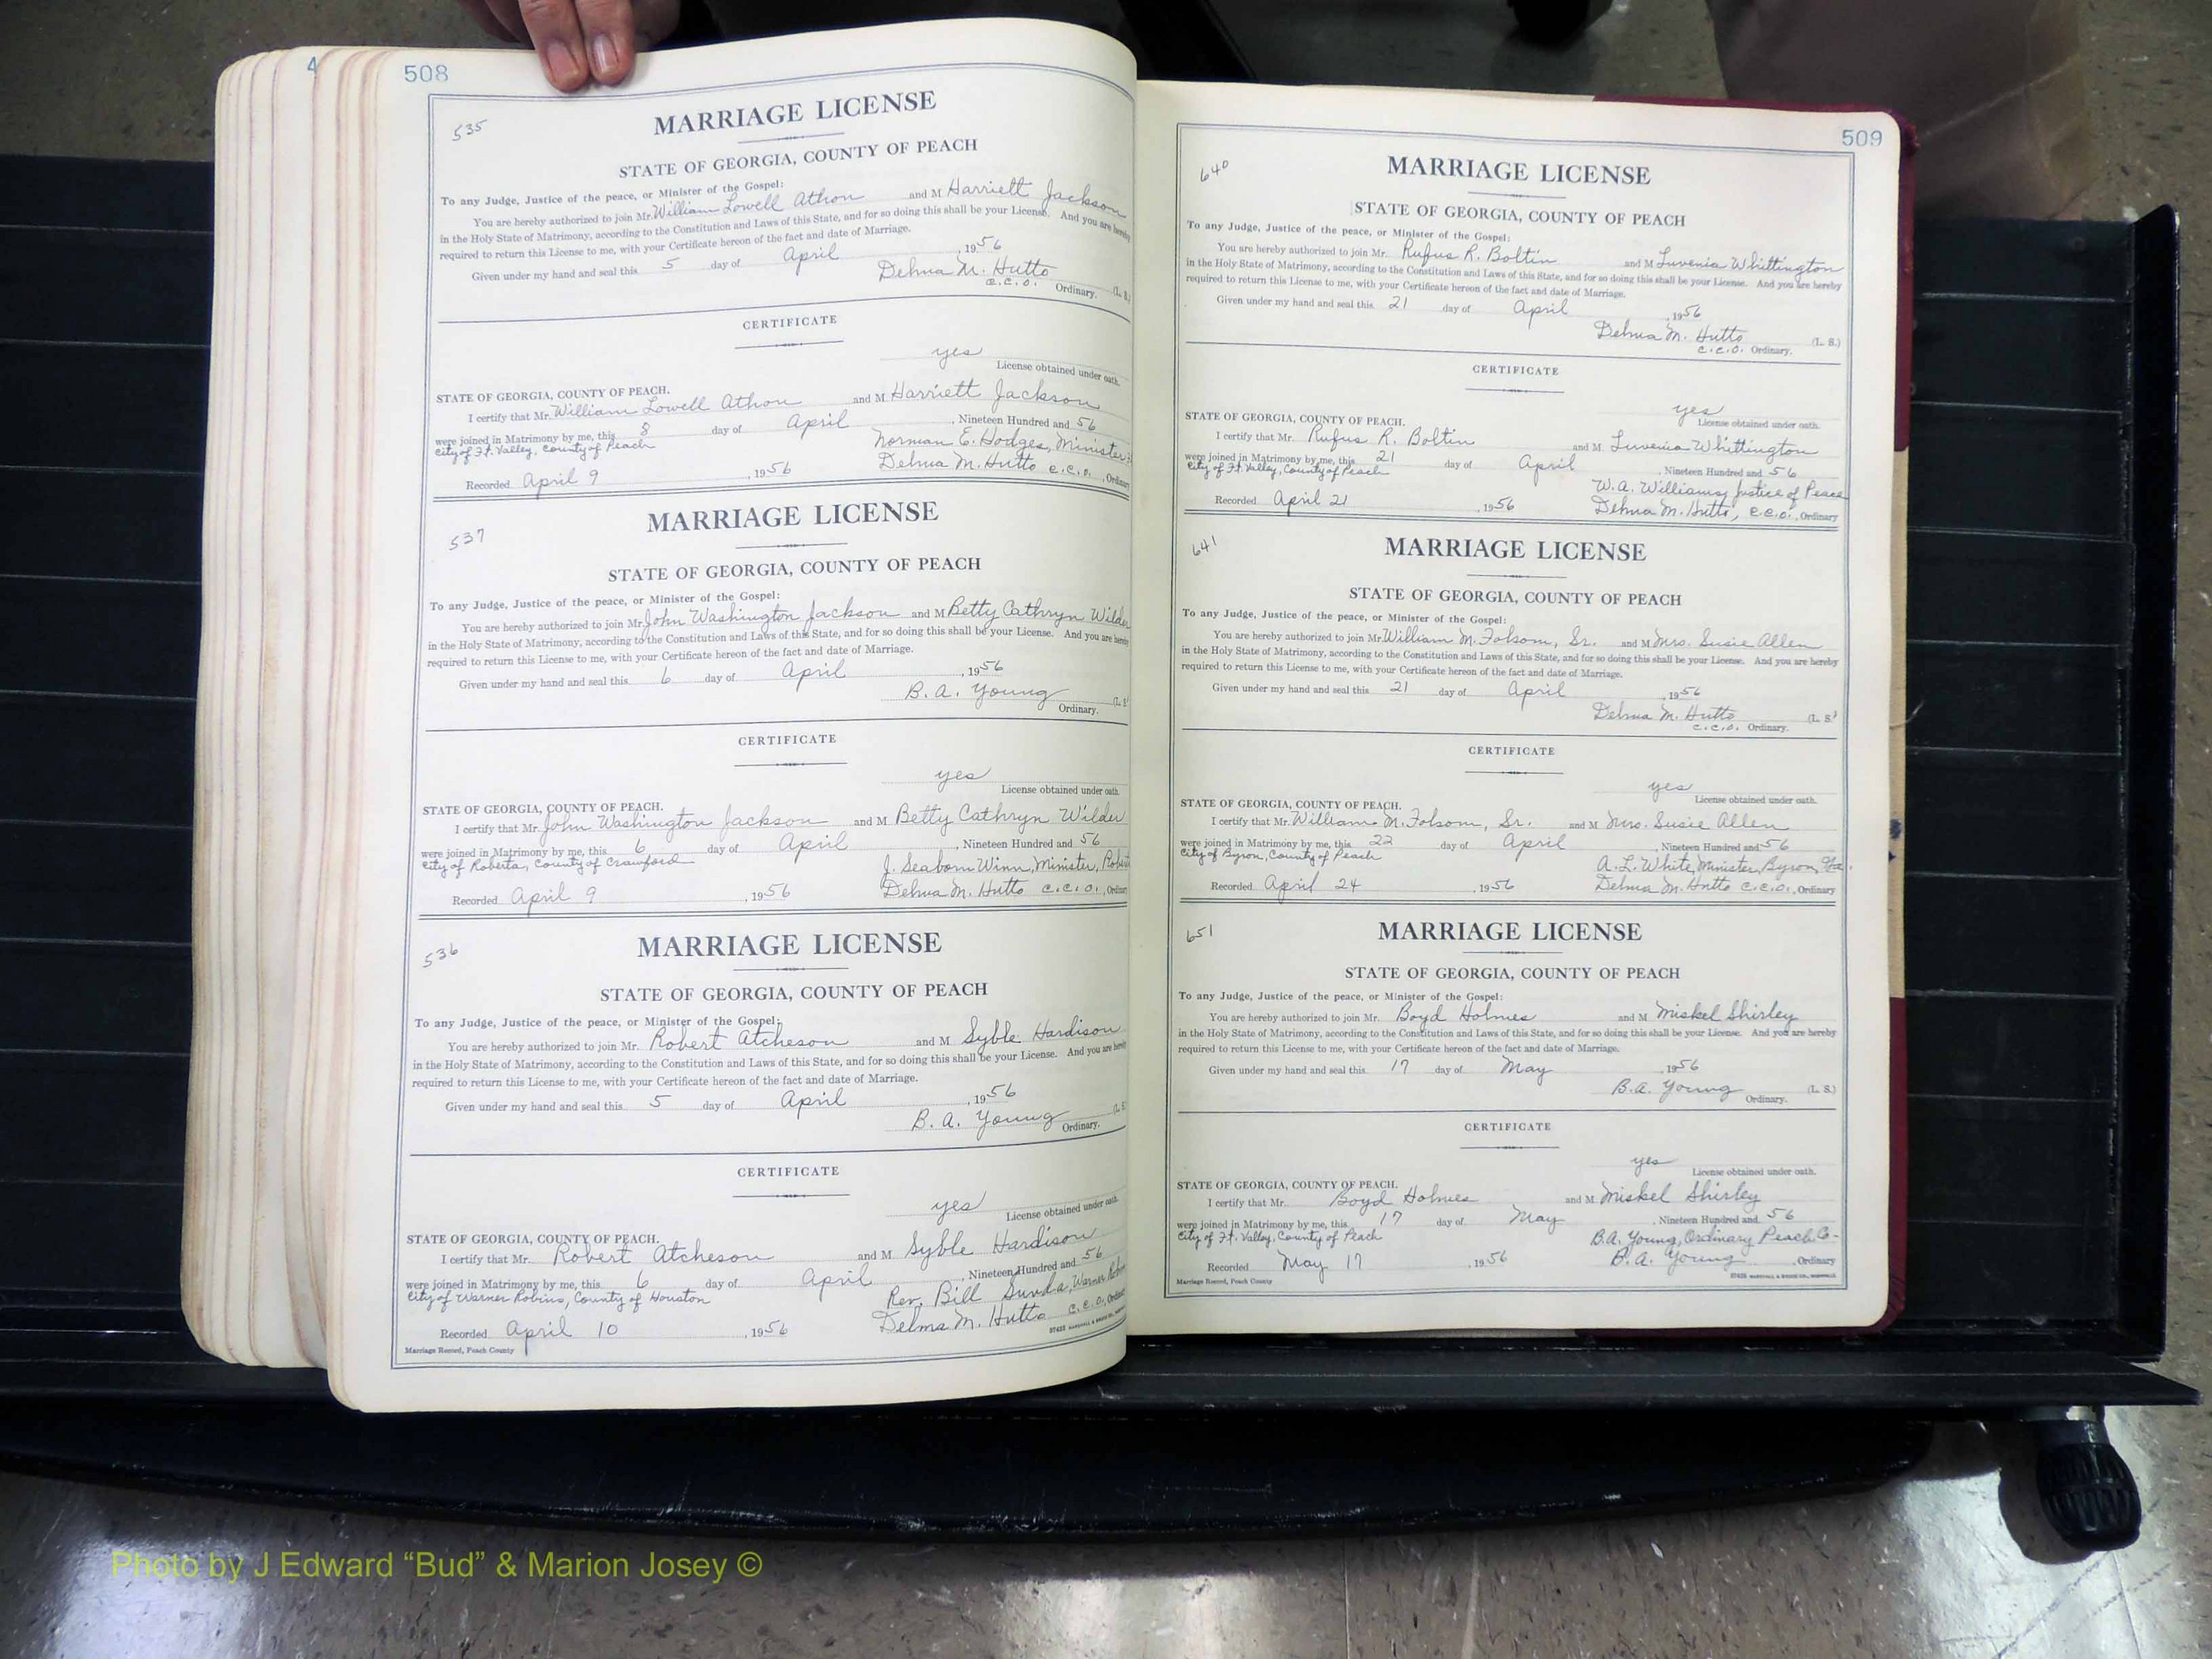 4
508
535
MARRIAGE LICENSE
STATE OF GEORGIA, COUNTY OF PEACH
To any Judge, Justice of the peace, or Minister of the Gospel:
You are hereby authorized to join Mr. William Lowell Athon and M Harriett Jackson
in the Holy State of Matrimony, according to the Constitution and Laws of this State, and for so doing this shall be your License. And you are hereby
required to return this License to me, with your Certificate hereon of the fact and date of Marriage.
Given under my hand and seal this 5 day of April, 1956
Delma M. Hutto (L. S.)
C.C.O. Ordinary.
CERTIFICATE
yes
License obtained under oath.
STATE OF GEORGIA, COUNTY OF PEACH.
I certify that Mr. William Lowell Athon and M Harriett Jackson
were joined in Matrimony by me, this 8 day of April, Nineteen Hundred and 56
City of Ft. Valley, County of Peach Norman E. Hodges, Minister
Delma M. Hutto C.C.O., Ordinary
Recorded April 9, 1956
537
MARRIAGE LICENSE
STATE OF GEORGIA, COUNTY OF PEACH
To any Judge, Justice of the peace, or Minister of the Gospel:
You are hereby authorized to join Mr. John Washington Jackson and M Betty Cathryn Wilder
in the Holy State of Matrimony, according to the Constitution and Laws of this State, and for so doing this shall be your License. And you are hereby
required to return this License to me, with your Certificate hereon of the fact and date of Marriage.
Given under my hand and seal this 6 day of April, 1956
B. A. Young (L. S.)
Ordinary.
CERTIFICATE
yes
License obtained under oath.
STATE OF GEORGIA, COUNTY OF PEACH.
I certify that Mr. John Washington Jackson and M Betty Cathryn Wilder
were joined in Matrimony by me, this 6 day of April, Nineteen Hundred and 56
City of Roberta, County of Crawford J. Seaborn Winn, Minister,
Recorded April 9, 1956 Delma M. Hutto C.C.O., Ordinary
536
MARRIAGE LICENSE
STATE OF GEORGIA, COUNTY OF PEACH
To any Judge, Justice of the peace, or Minister of the Gospel:
You are hereby authorized to join Mr. Robert Atcheson and M Syble Hardison
in the Holy State of Matrimony, according to the Constitution and Laws of this State, and for so doing this shall be your License. And you are hereby
required to return this License to me, with your Certificate hereon of the fact and date of Marriage.
Given under my hand and seal this 5 day of April, 1956
B. A. Young (L. S.
Ordinary.
CERTIFICATE
yes
License obtained under oath.
STATE OF GEORGIA, COUNTY OF PEACH.
I certify that Mr. Robert Atcheson and M Syble Hardison
were joined in Matrimony by me, this 6 day of April, Nineteen Hundred and 56
City of Warner Robins, County of Houston Rev. Bill Warner
Recorded April 10, 1956 Delma M. Hutto C.C.O., Ordinary
Marriage Record, Peach County
509
640
MARRIAGE LICENSE
STATE OF GEORGIA, COUNTY OF PEACH
To any Judge, Justice of the peace, or Minister of the Gospel:
You are hereby authorized to join Mr. Rufus R. Boltin and M Luvenia Whittington
in the Holy State of Matrimony, according to the Constitution and Laws of this State, and for so doing this shall be your License. And you are hereby
required to return this License to me, with your Certificate hereon of the fact and date of Marriage.
Given under my hand and seal this 21 day of April, 1956
Delma M. Hutto (L. S.)
C.C.O. Ordinary.
CERTIFICATE
yes
License obtained under oath.
STATE OF GEORGIA, COUNTY OF PEACH.
I certify that Mr. Rufus R. Boltin and M Luvenia Whittington
were joined in Matrimony by me, this 21 day of April, Nineteen Hundred and 56
City of Ft. Valley, County of Peach W. A. Williams, Justice of Peace
Recorded April 21, 1956 Delma M. Hutto, C.C.O., Ordinary
641
MARRIAGE LICENSE
STATE OF GEORGIA, COUNTY OF PEACH
To any Judge, Justice of the peace, or Minister of the Gospel:
You are hereby authorized to join Mr. William M. Folsom, Sr. and M Mrs. Susie Allen
in the Holy State of Matrimony, according to the Constitution and Laws of this State, and for so doing this shall be your License. And you are hereby
required to return this License to me, with your Certificate hereon of the fact and date of Marriage.
Given under my hand and seal this 21 day of April, 1956
Delma M. Hutto (L. S.)
C.C.O. Ordinary.
CERTIFICATE
yes
License obtained under oath.
STATE OF GEORGIA, COUNTY OF PEACH.
I certify that Mr. William M. Folsom, Sr. and M Mrs. Susie Allen
were joined in Matrimony by me, this 22 day of April, Nineteen Hundred and 56
City of Byron, County of Peach A. L. White, Minister, Byron, Ga.
Recorded April 24, 1956 Delma M. Hutto C.C.O., Ordinary
651
MARRIAGE LICENSE
STATE OF GEORGIA, COUNTY OF PEACH
To any Judge, Justice of the peace, or Minister of the Gospel:
You are hereby authorized to join Mr. Boyd Holmes and M Miskel Shirley
in the Holy State of Matrimony, according to the Constitution and Laws of this State, and for so doing this shall be your License. And you are hereby
required to return this License to me, with your Certificate hereon of the fact and date of Marriage.
Given under my hand and seal this 17 day of May, 1956
B. A. Young (L. S.)
Ordinary.
CERTIFICATE
yes
License obtained under oath.
STATE OF GEORGIA, COUNTY OF PEACH.
I certify that Mr. Boyd Holmes and M Miskel Shirley
were joined in Matrimony by me, this 17 day of May, Nineteen Hundred and 56
City of Ft. Valley, County of Peach B. A. Young, Ordinary Peach Co.
Recorded May 17, 1956 B. A. Young, Ordinary
Marriage Record, Peach County
Photo by J Edward “Bud” & Marion Josey ©